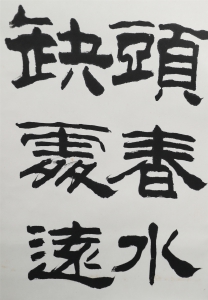 頭春水
缺處遠